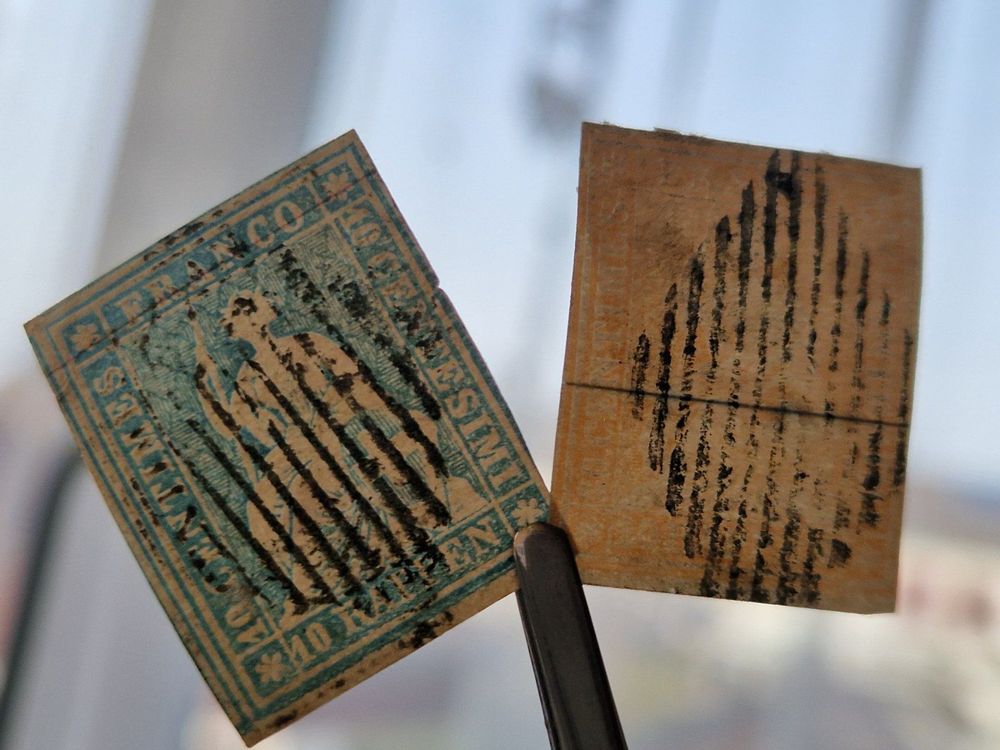 FRANCO
10 CENTIMES
10 CENTESIMI
10 RAPPEN
CENTIMES